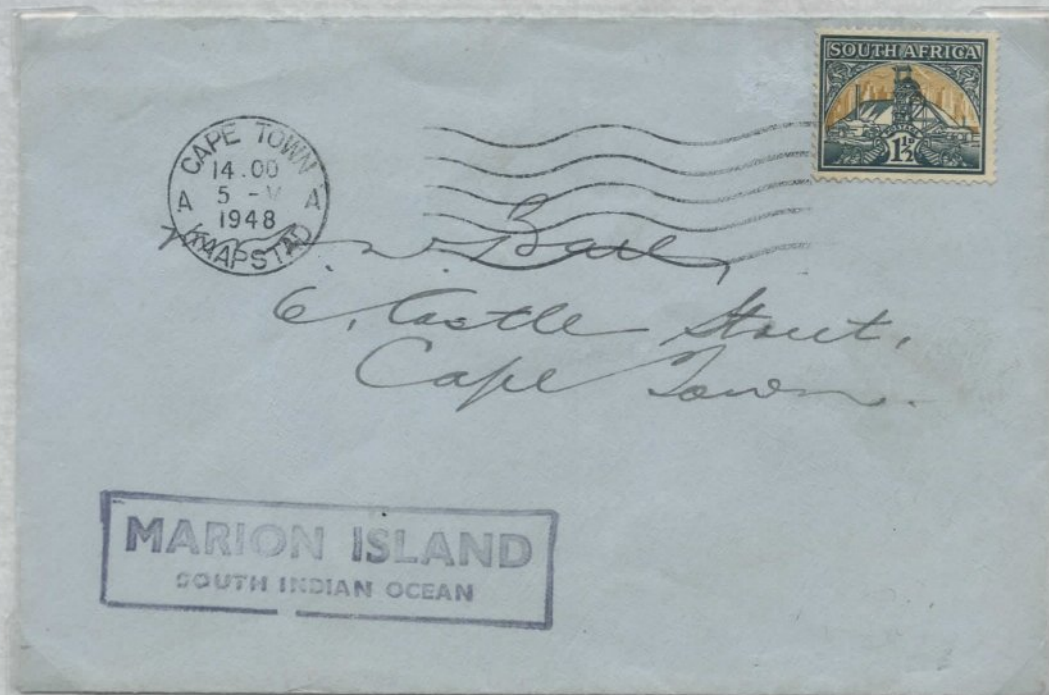 SOUTH AFRICA
POSTAGE
1½D
CAPE TOWN
14.00
A 5 -V A
1948
KAAPSTAD
6, Castle Street,
Cape Town.
MARION ISLAND
SOUTH INDIAN OCEAN